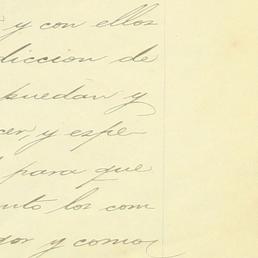 y con ellos
diccion de
puedan y
cer, y espe-
para que
nto los com
dor y como